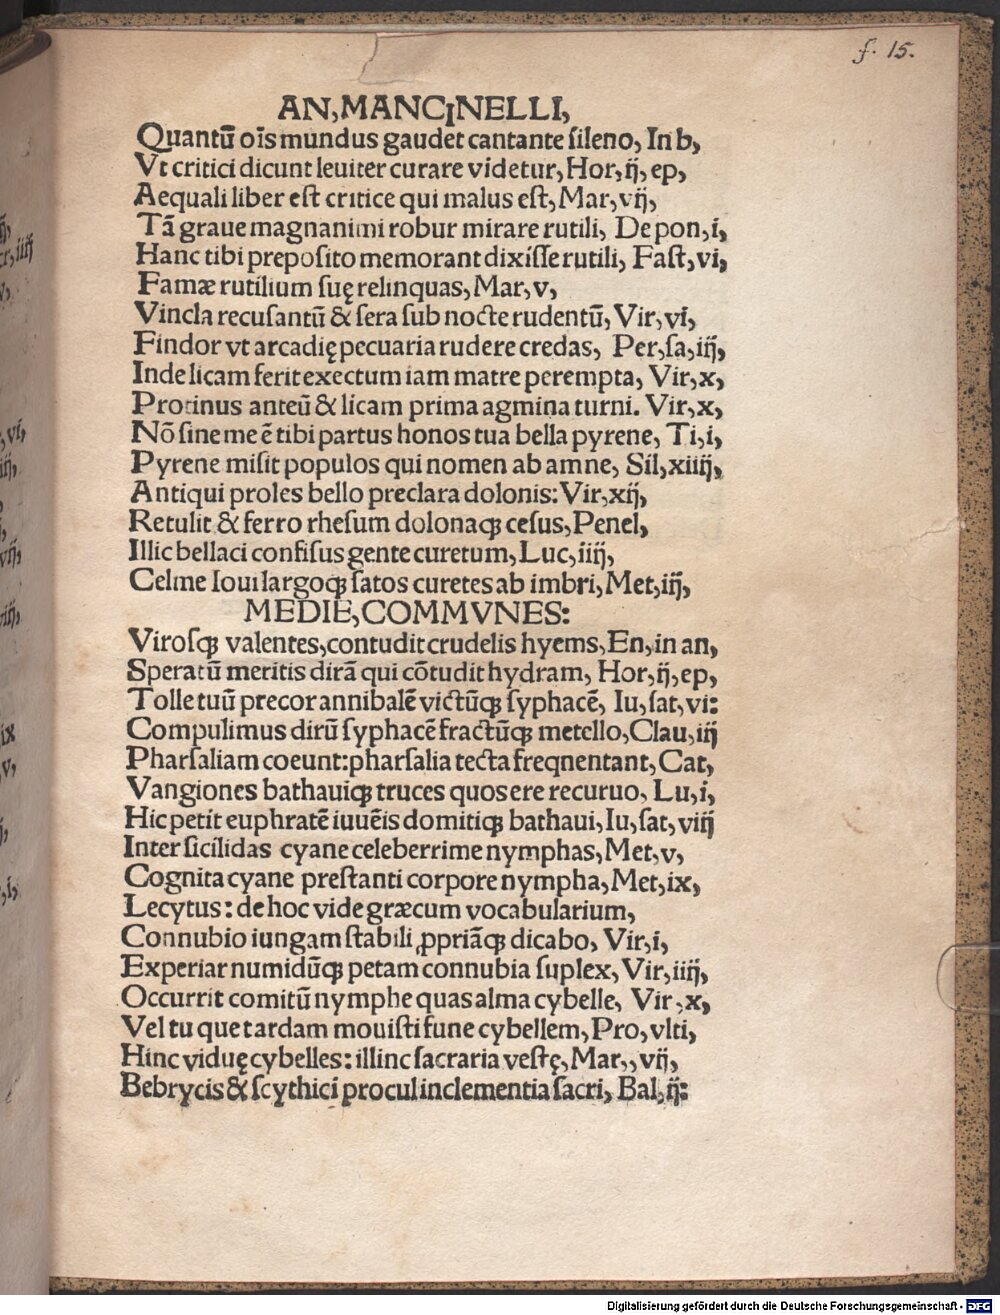 f. 15.
AN,MANCINELLI,
Quantū oīs mundus gaudet cantante ſileno, In b,
Vt critici dicunt leuiter curare videtur, Hor,ij,ep,
Aequali liber eſt critice qui malus eſt, Mar,vij,
Tā graue magnanimi robur mirare rutili, De pon,i,
Hanc tibi prepoſito memorant dixiſſe rutili, Faſt,vi,
Famæ rutilium ſuę relinquas, Mar,v,
Vincla recuſantū & ſera ſub nocte rudentū, Vir,vi,
Findor vt arcadię pecuaria rudere credas, Per,ſa,iij,
Inde licam ferit exectum iam matre perempta, Vir,x,
Protinus anteū & licam prima agmina turni. Vir,x,
Nō ſine me ē tibi partus honos tua bella pyrene, Ti,i,
Pyrene miſit populos qui nomen ab amne, Sil,xiiij,
Antiqui proles bello preclara dolonis: Vir,xij,
Retulit & ferro rheſum dolonaqꝫ ceſus, Penel,
Illic bellaci confiſus gente curetum, Luc,iiij,
Celme Ioui largoqꝫ ſatos curetes ab imbri, Met,iij,
MEDIE,COMMVNES:
Viroſqꝫ valentes,contudit crudelis hyems, En,in an,
Speratū meritis dirā qui cōtudit hydram, Hor,ij,ep,
Tolle tuū precor annibalē victūqꝫ ſyphacē, Iu,ſat,vi:
Compulimus dirū ſyphacē fractūqꝫ metello, Clau,iij
Pharſaliam coeunt:pharſalia tecta freqnentant, Cat,
Vangiones bathauiqꝫ truces quos ere recuruo, Lu,i,
Hic petit euphratē iuuēis domitiqꝫ bathaui, Iu,ſat,viij
Inter ſicilidas cyane celeberrime nymphas, Met,v,
Cognita cyane preſtanti corpore nympha, Met,ix,
Lecytus: de hoc vide græcum vocabularium,
Connubio iungam ſtabili ꝓpriāqꝫ dicabo, Vir,i,
Experiar numidūqꝫ petam connubia ſuplex, Vir,iiij,
Occurrit comitū nymphe quas alma cybelle, Vir,x,
Vel tu que tardam mouiſti fune cybellem, Pro,vlti,
Hinc viduę cybelles: illinc ſacraria veſtę, Mar,,vij,
Bebrycis & ſcythici procul inclementia ſacri, Bal,ij:
Digitalisierung gefördert durch die Deutsche Forschungsgemeinschaft - DFG